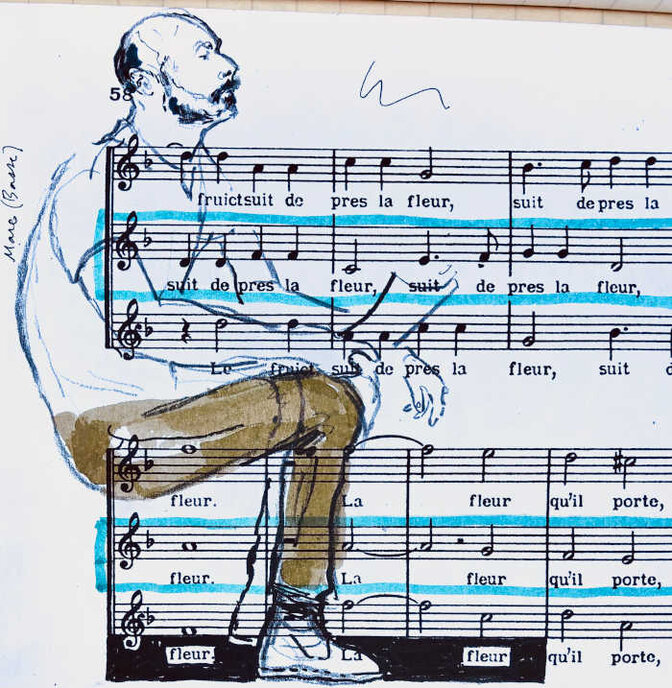 58
Marc (Basse)
fruictsuit de pres la fleur, suit de pres la
suit de pres la fleur, suit de pres la fleur,
Le fruict suit de pres la fleur, suit
fleur. La fleur qu'il porte,
fleur. La fleur qu'il porte,
fleur. La fleur qu'il porte,